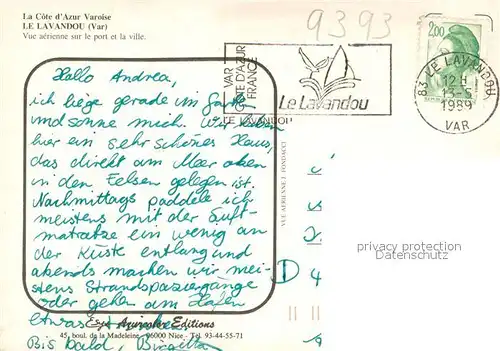 La Côte d'Azur Varoise
LE LAVANDOU (Var)
Vue aérienne sur le port et la ville.
9393
VAR
CÔTE D'AZUR
FRANCE
Le Lavandou
83 LE LAVANDOU
12 H
1989
VAR
2,00
Hallo Andrea,
ich liege gerade im
und sonne mich. Wir
hier ein sehr schönes Haus,
das direkt am Meer oben
in den Felsen gelegen ist.
Nachmittags paddele ich
meistens mit der Luft-
matratze ein wenig an
der Küste entlang und
abends machen wir mei-
stens Strandspaziergänge
oder gehen am Hafen
etwas
Bis bald, Birgitta
Editions
45, boul. de la Madeleine - 06000 Nice - Tel. 93-44-55-71
VUE AERIENNE J. FONDACCI
D
4
privacy protection
Datenschutz